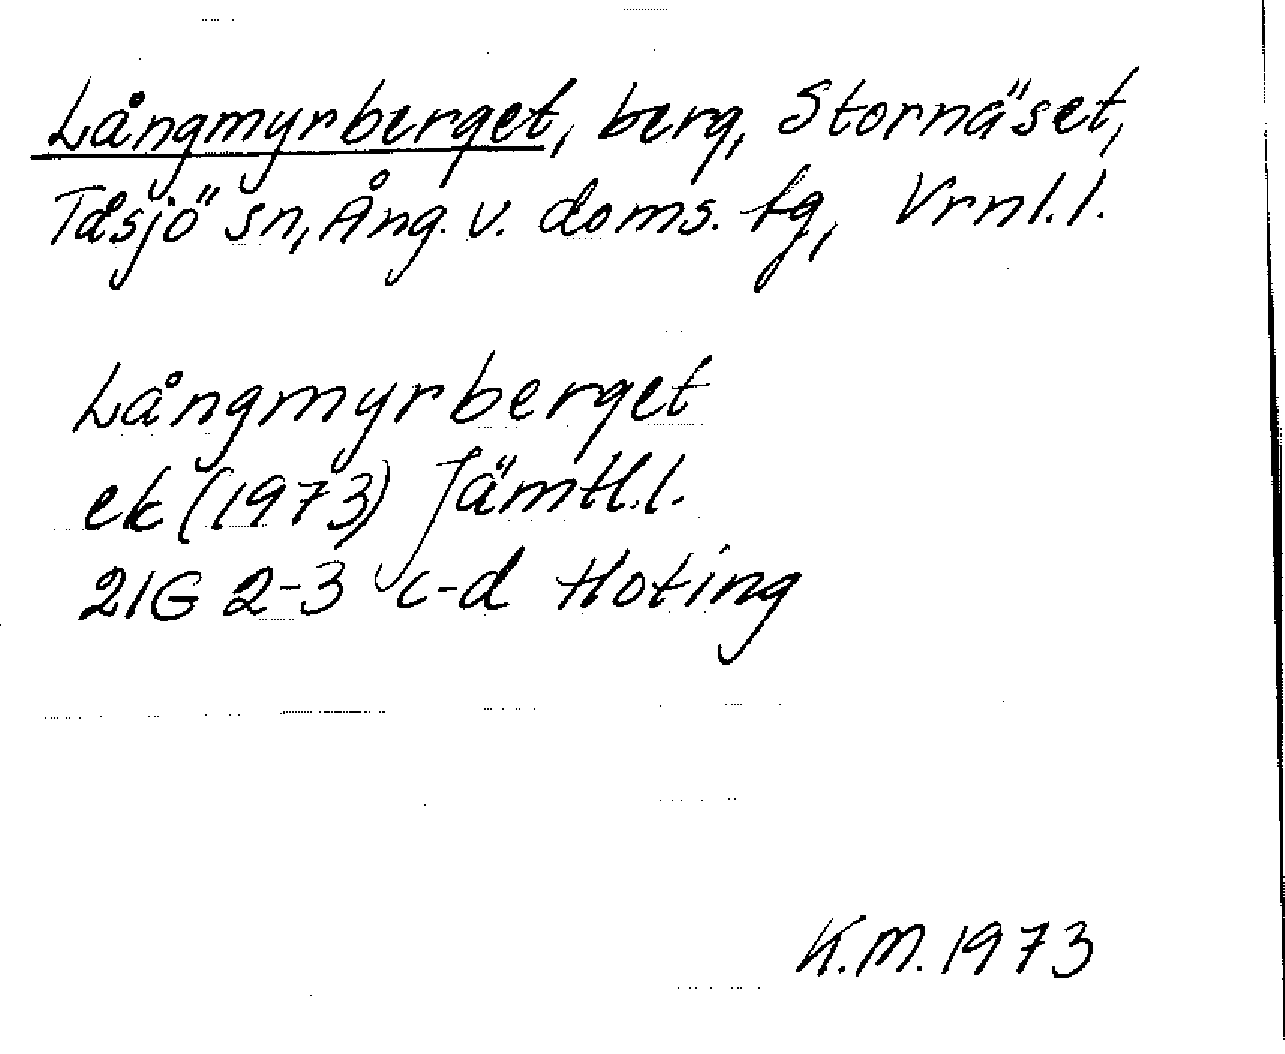 Långmyrberget, berg, Stornäset,
Tåsjö sn, Ång. v. doms. tg, Vrnl.l.
Långmyrberget
ek (1973) Jämtl.l.
21G 2-3 c-d Hoting
K.M. 1973